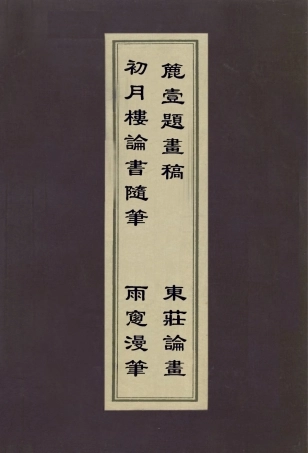 麓臺題畫稿
東莊論畫
初月樓論書隨筆
雨窻漫筆